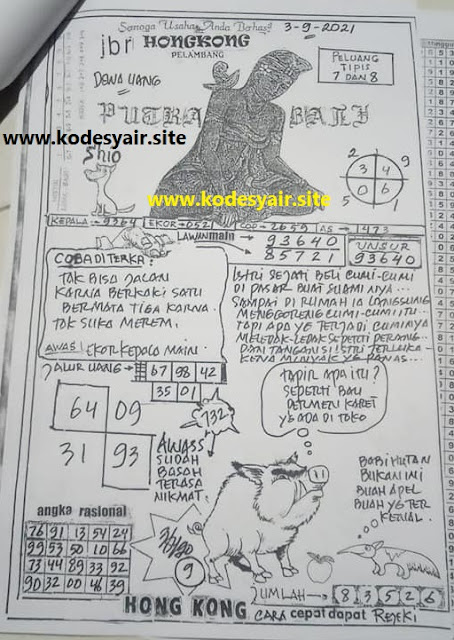 Semoga Usaha Anda Berhasil
3-9-2021
jbr HONGKONG
PELAMBANG
PELUANG
TIPIS
7 DAN 8
DEWA UANG
PUTRA BALI
www.kodesyair.site
Shio
www.kodesyair.site
2 5 9 1
3 4
0 6
KEPALA = 9364 EKOR = 0521 COP = 2659 AS = 1473
LAWAN main 93640
85721
UNSUR
93640
COBA DITERKA:
TAK BISA JALAN
KARNA BERKAKI SATU
BERMATA TIGA KARNA
TAK SUKA MEREM.
AWAS! EKOR KEPALA MAIN.
ISTRI SEJATI BELI CUMI-CUMI
DI PASAR BUAT SUAMINYA...
SAMPAI DI RUMAH IA LANGSUNG
MENGGORENG CUMI-CUMI ITU...
TAPI APA YG TERJADI CUMINYA
MELEDAK-LEDAK SEPERTI PERANG..
DAN TANGAN SI ISTRI TERLUKA-
KENA MINYAK YG PANAS...
JALUR UANG 67 98 42
35 01
64 09
31 93
732
AWASS
SUDAH
BASAH
TERASA
NIKMAT.
TAPIR APA ITU?
SEPERTI BAU
PERMEN KARET
YG ADA DI TOKO
BABI HUTAN
BUKAN INI
BUAH APEL
BUAH YG TER
KENAL.
angka rasional
76 91 13 54 24
99 53 50 10 66
73 44 89 33 92
90 32 00 46 39
9
JUMLAH → 8 3 5 2 6
HONG KONG CARA cepat dapat REJEKI